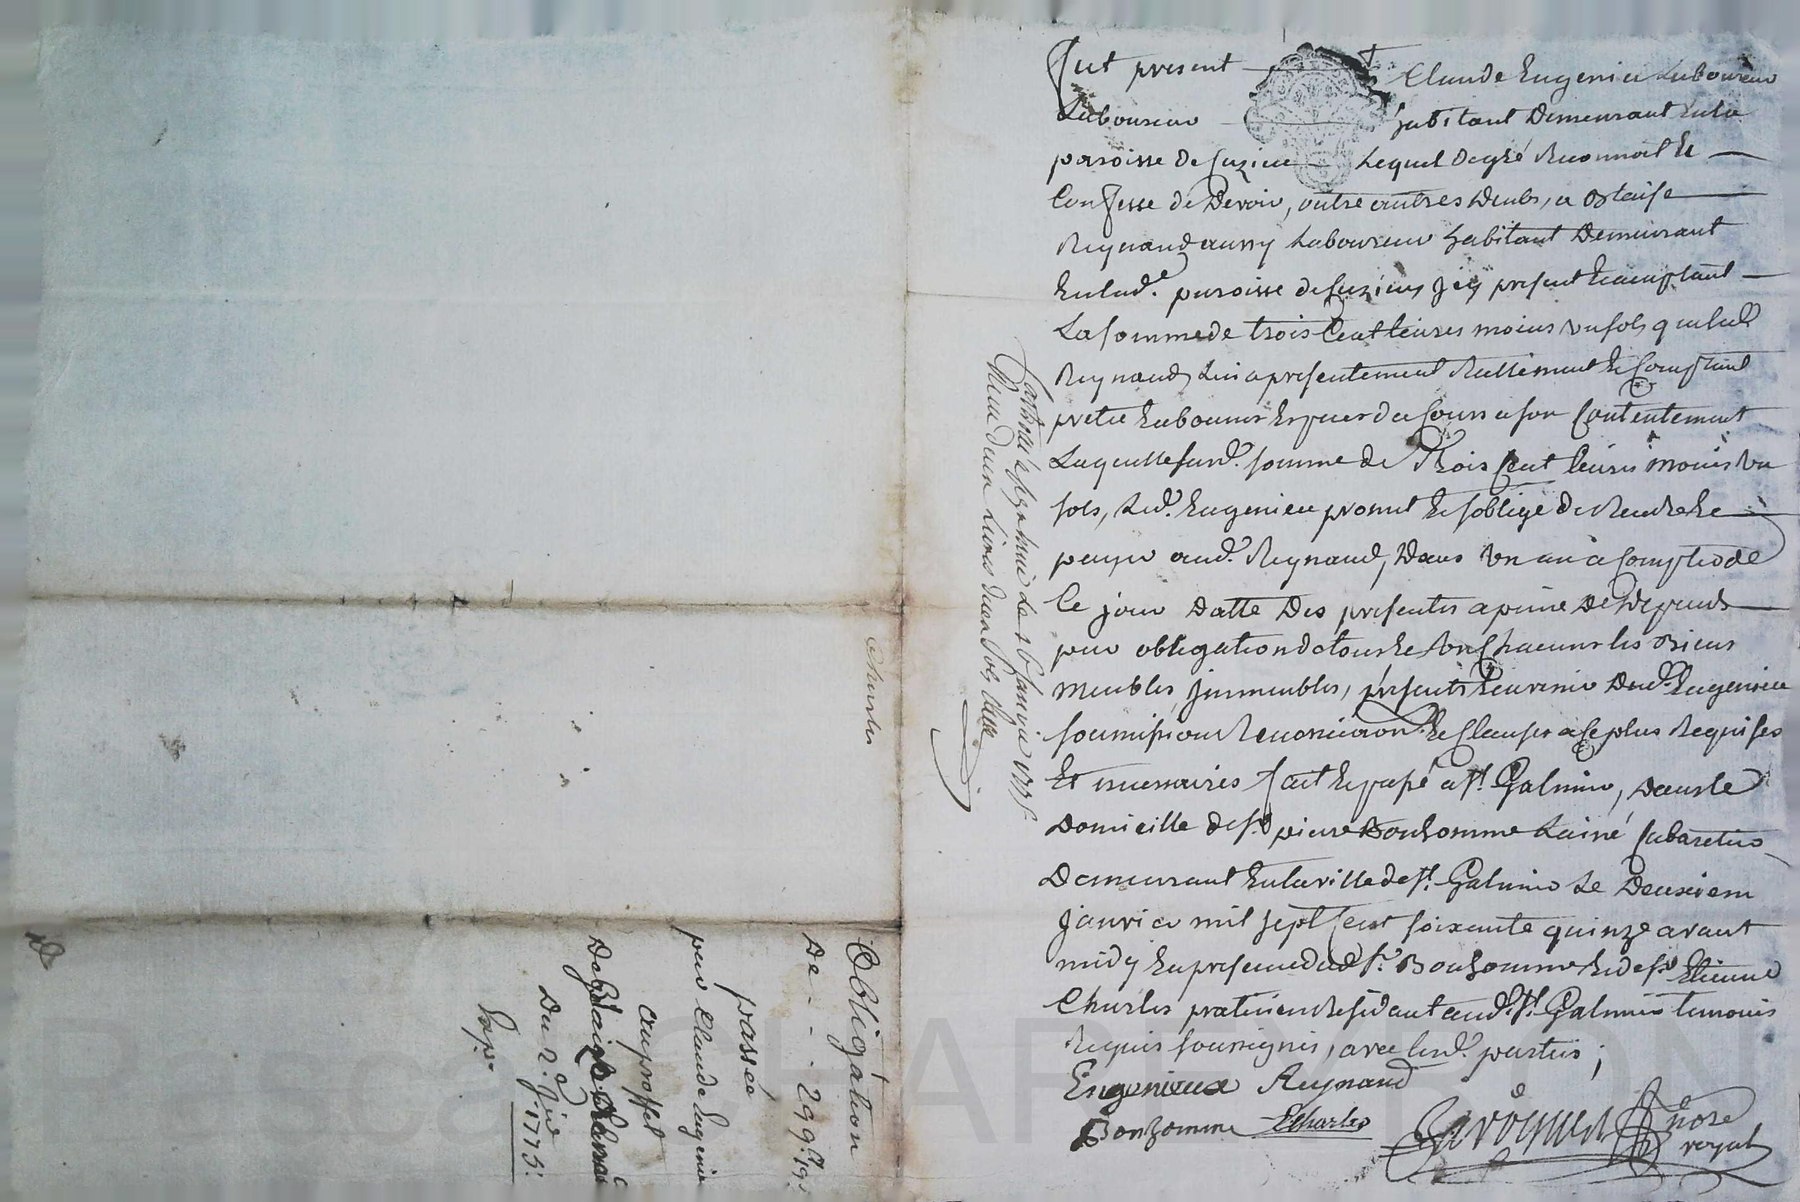 Fut present Claude Eugenieu Laboureur
Laboureur habitant Demeurant En la
paroisse de Cuzieu Lequel de gré Reconnoit Et
Confesse de Devoir, outre autres Deubs, a Blaise
Reynaud aussy Laboureur habitant Demeurant
En lad.e paroisse de Cuzieu Jcy present Et acceptant
La somme de trois Cent livres moins un sols que led.
Reynaud Lui a presentement Reellement Et Comptant
preté En bonnes Especes du Cours a son Contentement
Laquelle susd. somme de Trois Cent livres moins Un
sols, Led. Eugenieu promet Et s'oblige de Rendre Et
payer aud. Reynaud, Dans Un an a Compter de
Ce jour Datte Des presentes a peine De Depends
par obligation de tous Et Un Chacuns les Biens
Meubles, Jmmeubles, présents Et avenir Dud. Eugenieu
soumissions Renonciaon Et Clauses a Ce plus Requises
Et necessaires fait Et passé a St. Galmier, Dans le
Domicille de sr. pierre Bonhomme Lainé Cabaretier
Demeurant En la ville de St. Galmier Le Deuxiem
Janvier mil sept Cent soixante quinze avant
midy En presence dud. sr. Bonhomme Et de sr. Etienne
Charles praticien Residant aud. St. Galmier temoins
Requis soussignés, avec lesd. parties;
Eugenieux Reynaud
Bonhomme ECharles
nore
royal
Contrôllé a St Galmier Le 16 janvier 1775.
Reçu deux Livres deux sols
Charles
Obligation
De - - 299# 19s
passée
par Claude Eugenieu
au proffit
De Blaise
Du 2.e Jer 1775.
Pap.